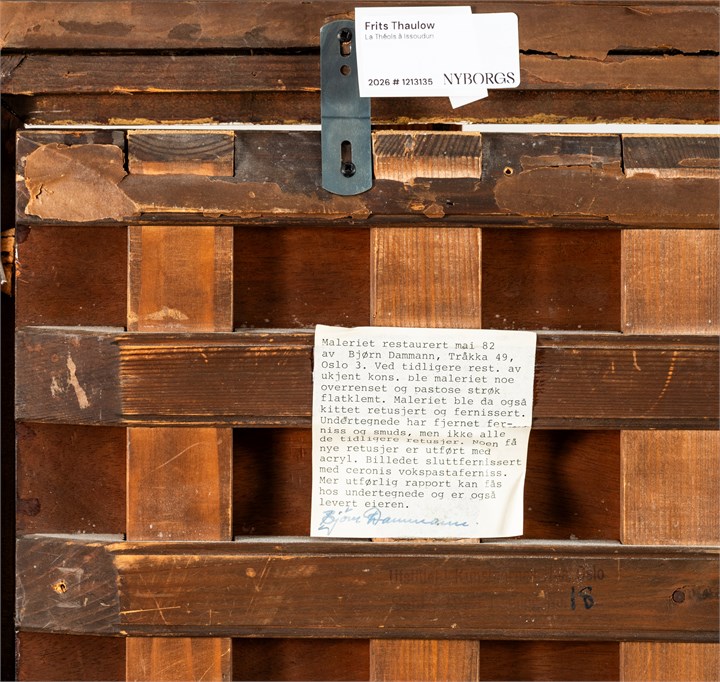 Frits Thaulow
La Théols à Issoudun
2026 # 1213135 NYBORGS
Maleriet restaurert mai 82
av Bjørn Dammann, Tråkka 49,
Oslo 3. Ved tidligere rest. av
ukjent kons. ble maleriet noe
overrenset og pastose strøk
flatklemt. Maleriet ble da også
kittet retusjert og fernissert.
Undertegnede har fjernet fer-
niss og smuds, men ikke alle
de tidligere retusjer. Noen få
nye retusjer er utført med
acryl. Billedet sluttfernissert
med ceronis vokspastaferniss.
Mer utførlig rapport kan fås
hos undertegnede og er også
levert eieren.
Bjørn Dammann.
Oslo
18